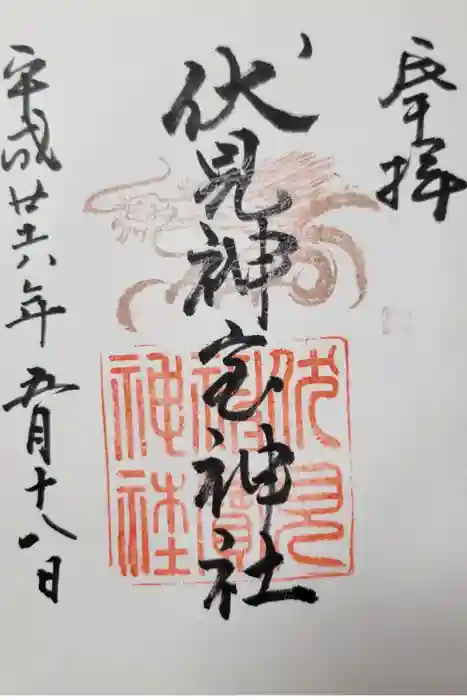 奉拝
伏見神宝神社
平成廿六年五月十八日
伏見
神寳
神社